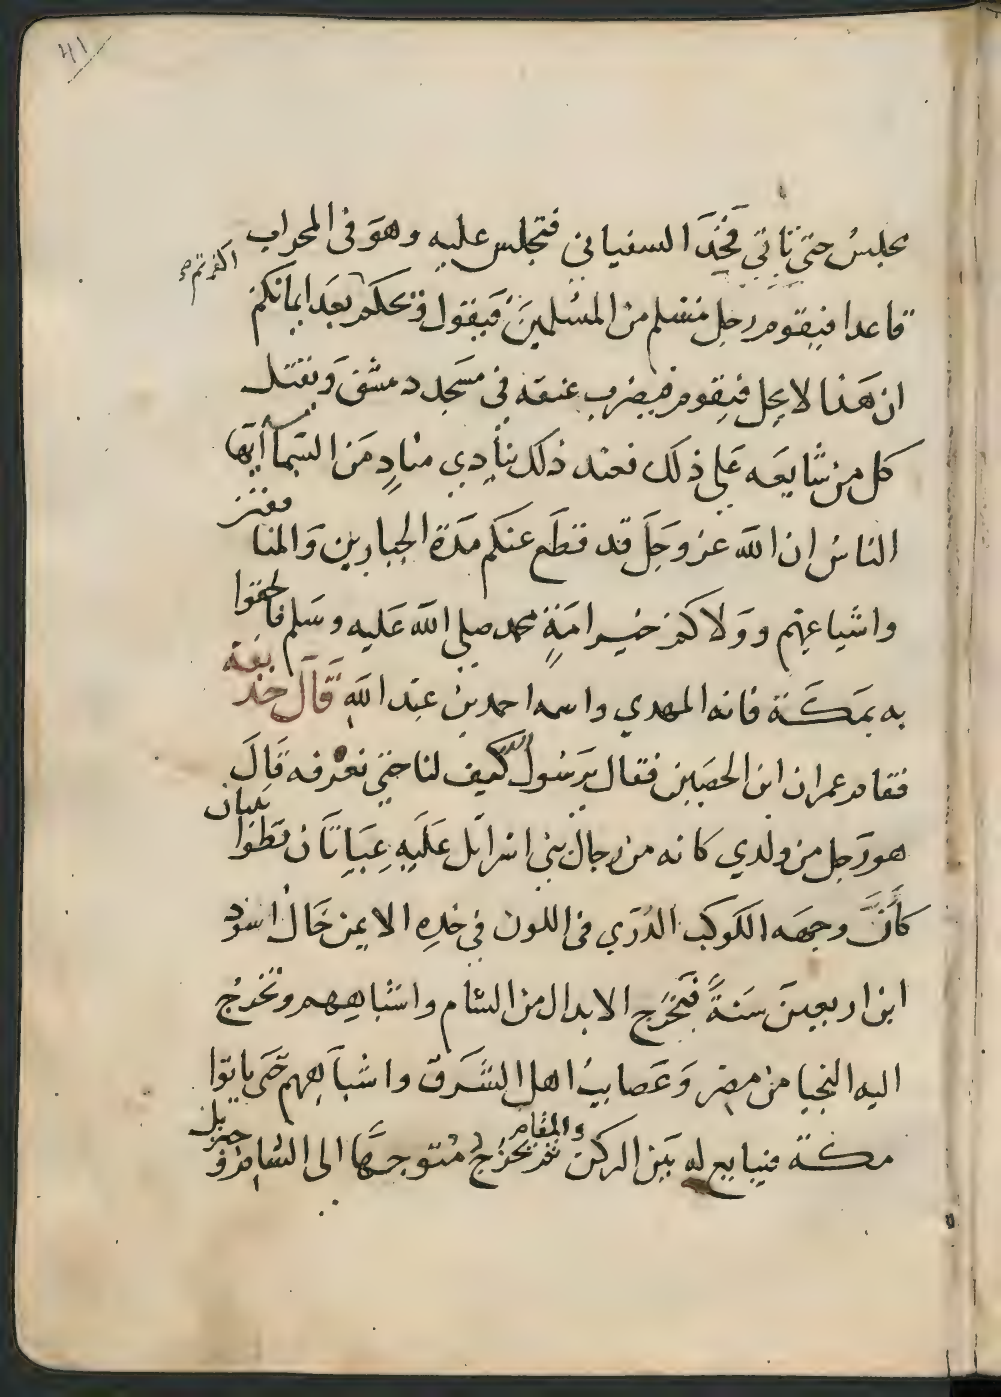 ٤١
مجلس حتى تاتي فَخِذَ السفياني فتجلس عليه وهوَ فى المحراب
قاعدا فيقوم رجل مسلم من المسْلمينَ فَيقول ويحكم بعَد ايمانكم
اكفرتم صح
ان هَذا لا يحل فيَقوم فيضرب عنقه في مسَجد دمشق وَيقتل
كل من شَايعَه عَلى ذلَك فعند ذلك ينَادِي منَادٍ مَن السَّمآ أيّها
الناس ان الله عز وجَلَ قد قطَع عنكم مَدّة الجبارين وَالمنافقين
واشياعهم وولاكم خير امَةٍ محمد صلى الله عَليه وسَلم فالحقوا
به بمَكَة فانه المهدي واسمه احمد بن عبد الله قَالَ حذيفة
فقام عمران ابن الحصَين فقال يرَسُول الله كيف لنا حتى نعْرفه قاَلَ
هو رَجل من ولدي كانه من رجال بني اسرائل عَليَهِ عبَايَتَان قطوَانيتان
كأَنَّ وجهَه الكَوكب الدُرّي فى اللون في خدِه الايمن خَال اسوَد
ابن اربعينَ سَنةً فيَخرُج الابدال من الشام واشباههم وتخرُج
اليه النجبا من مصْر وَعَصايبُ اهل الشَرَق واشباَههم حَتى ياتوا
مكَة فيبايع له بيَن الركن والمقام ثم يخرُجُ مُتوجهًا الى الشام وَجبريل